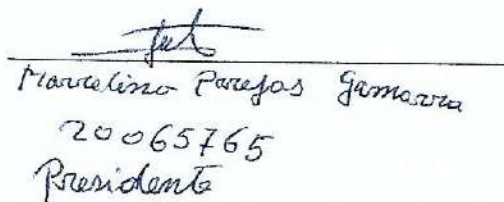 Marcelino Parejas Gamarra
20065765
Presidente